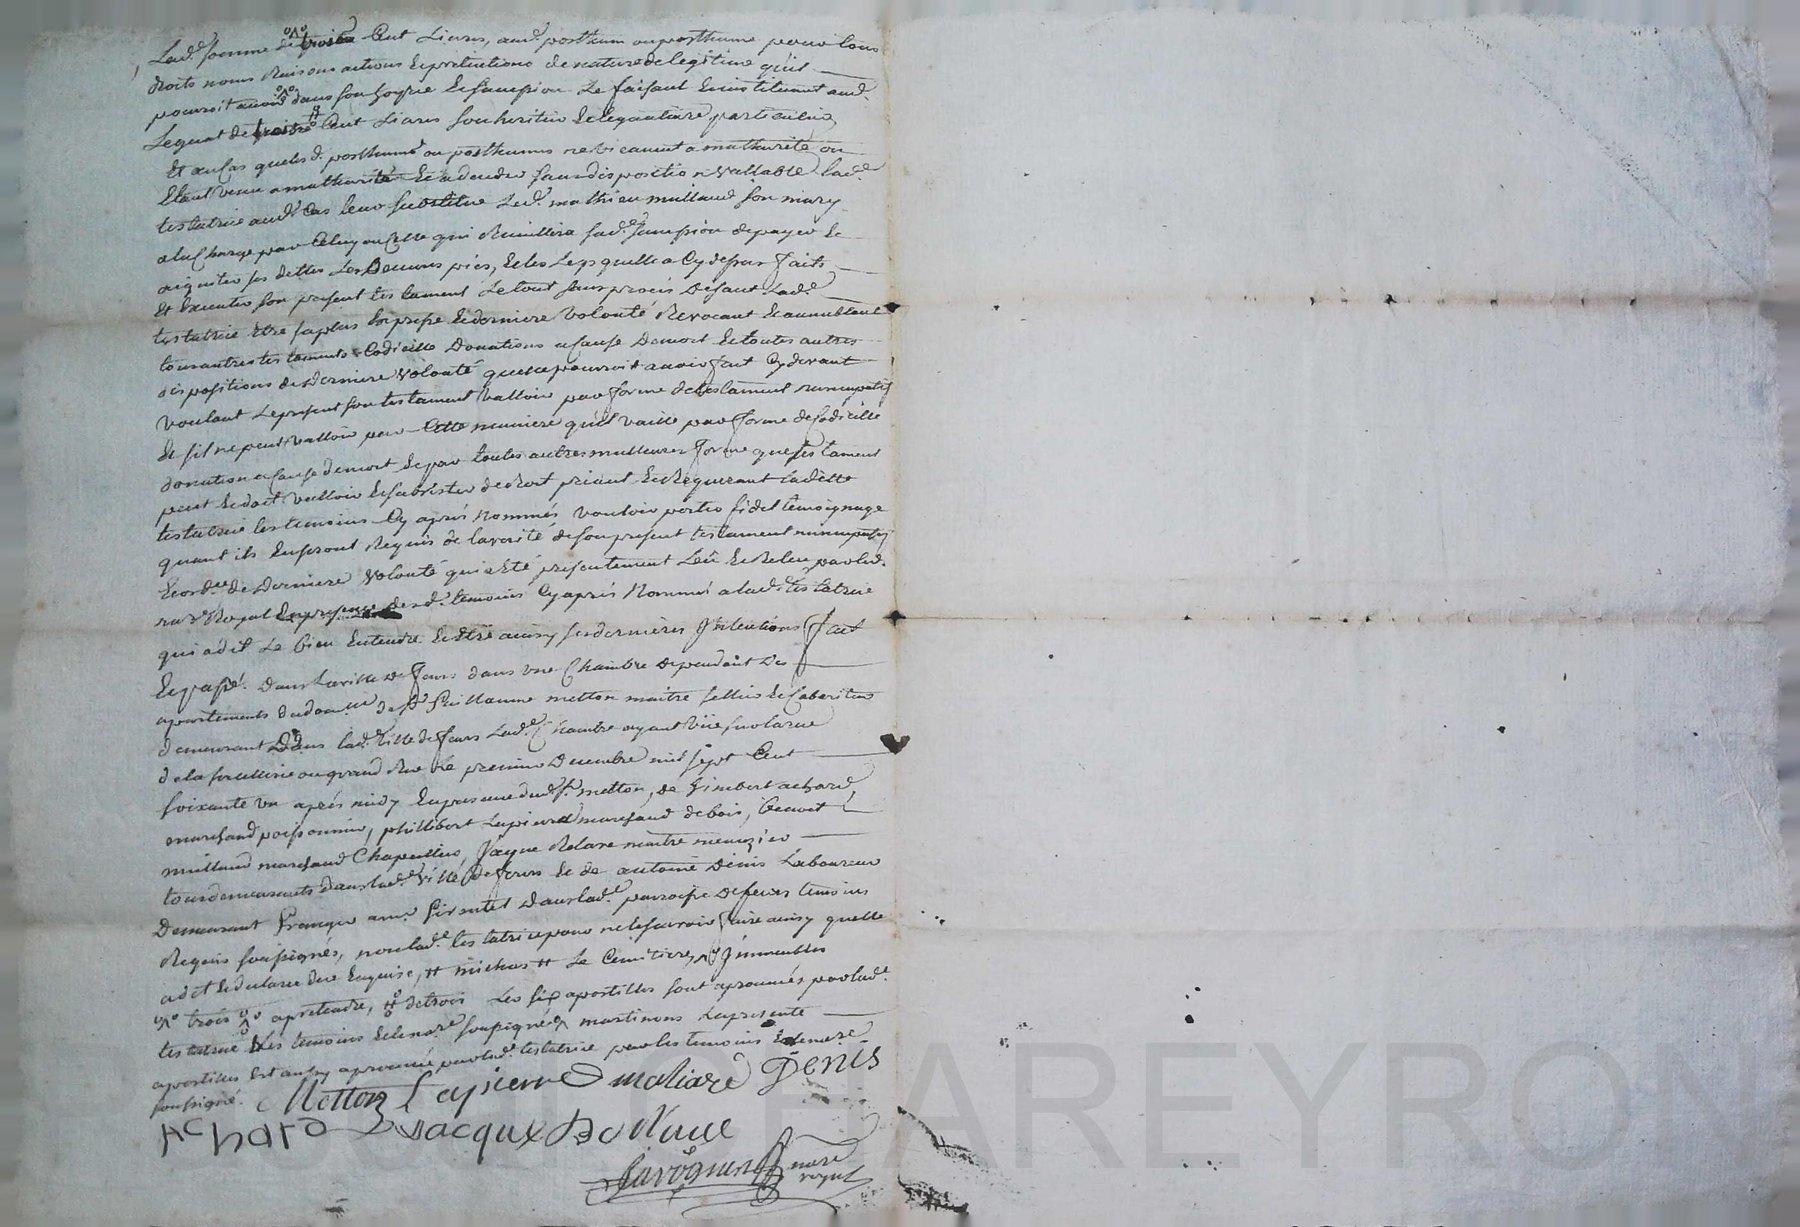 Lad.e somme de trois Cent Livres, aud.t posthum ou posthume pour tous
droits noms Raisons actions Et pretentions de nature de legitime quil
pourroit avoir dans son hoyrie Et sampsion Le faisant Et instituant aud.
Leguat de trois Cent Livres son heritier Et leguataire particulier
Et au Cas que led. posthume ou posthumes ne vienent a mathurité ou
Etant venu a mathurité Et a deceder sans disposition vallable lad.e
testatrice aud.t Cas leur substitue Led.t mathieu maillard son mary
a la Charge par Celuy ou Celle qui Recuillera sad.e sampsion de payer Et
aquiter ses dettes Les Oeuvres pies, Et les Legs quelle a Cy dessus faits
Et Executer son present testament Le tout sans procés disant Lad.e
testatrice Etre sa plus Expresse Et derniere volonté Revocant Et annullant
tous autres testaments Codicille Donations a Cause De mort Et toutes autres
dispositions de Derniere volonté quelle pourroit avoir fait Cy devant
voulant Le present son testament valloir par forme de testament nuncupatif
Et sil ne peut valloir par Cette maniere quil vaille par forme de Codicille
donation a Cause de mort Et par toutes autres meilleures forme que testament
peut Et doit valloir Et subsister de droit priant Et Requerant Ladette
testatrice les temoins Cy aprés Nommés vouloir porter fidel temoignage
quant ils En seront Requis de la verité de son present testament nuncupatif
Et ord.re de Derniere volonté qui a Eté presentement Leû Et Releu par led.
no.re Royal En presence desd. temoins Cy aprés Nommés a lad.e testatrice
qui a dit Le bien Entendre Et Etre ainsy ses dernieres Intentions Fait
Et passé Dans La ville de feurs dans une Chambre Dependant Des
apartements du dom.lle de S.r Guillaume metton maitre sellier Et Cabaretier
demeurant Dans lad.e ville de feurs Lad.e Chambre ayant vüe sur la rue
de la sarellerie ou grand Rue Le premier Decembre mil sept Cent
soixante un aprés midy En presence dud. S.r metton, de Gimbert achard,
marchand poissonnier, phillibert Lapierre marchand de bois, Benoit
maillard marchand Chapellier, Jaque Relave maitre menuzier
tous demeurants dans lad.e ville de feurs Et de antoine Denis Laboureur
Demeurant dans lad.e parroisse de feurs temoins
Requis soussignés, non lad.e testatrice pour ne le sçavoir faire ainsy quelle
a dit Et declaré De ce Enquise, michas Le Cemitiere Immeubles
trois apretendre, de trois Les six apostilles sont aprouvés par lad.e
testatrice Les temoins Et le no.re soussignés martinons La presente
apostille Est aussy aprouvée par lad.e testatrice par les temoins Et le no.re
soussigné.
Metton Lapierre maliard Denis
Achard Jacque
no.re
royal
PAREYRON